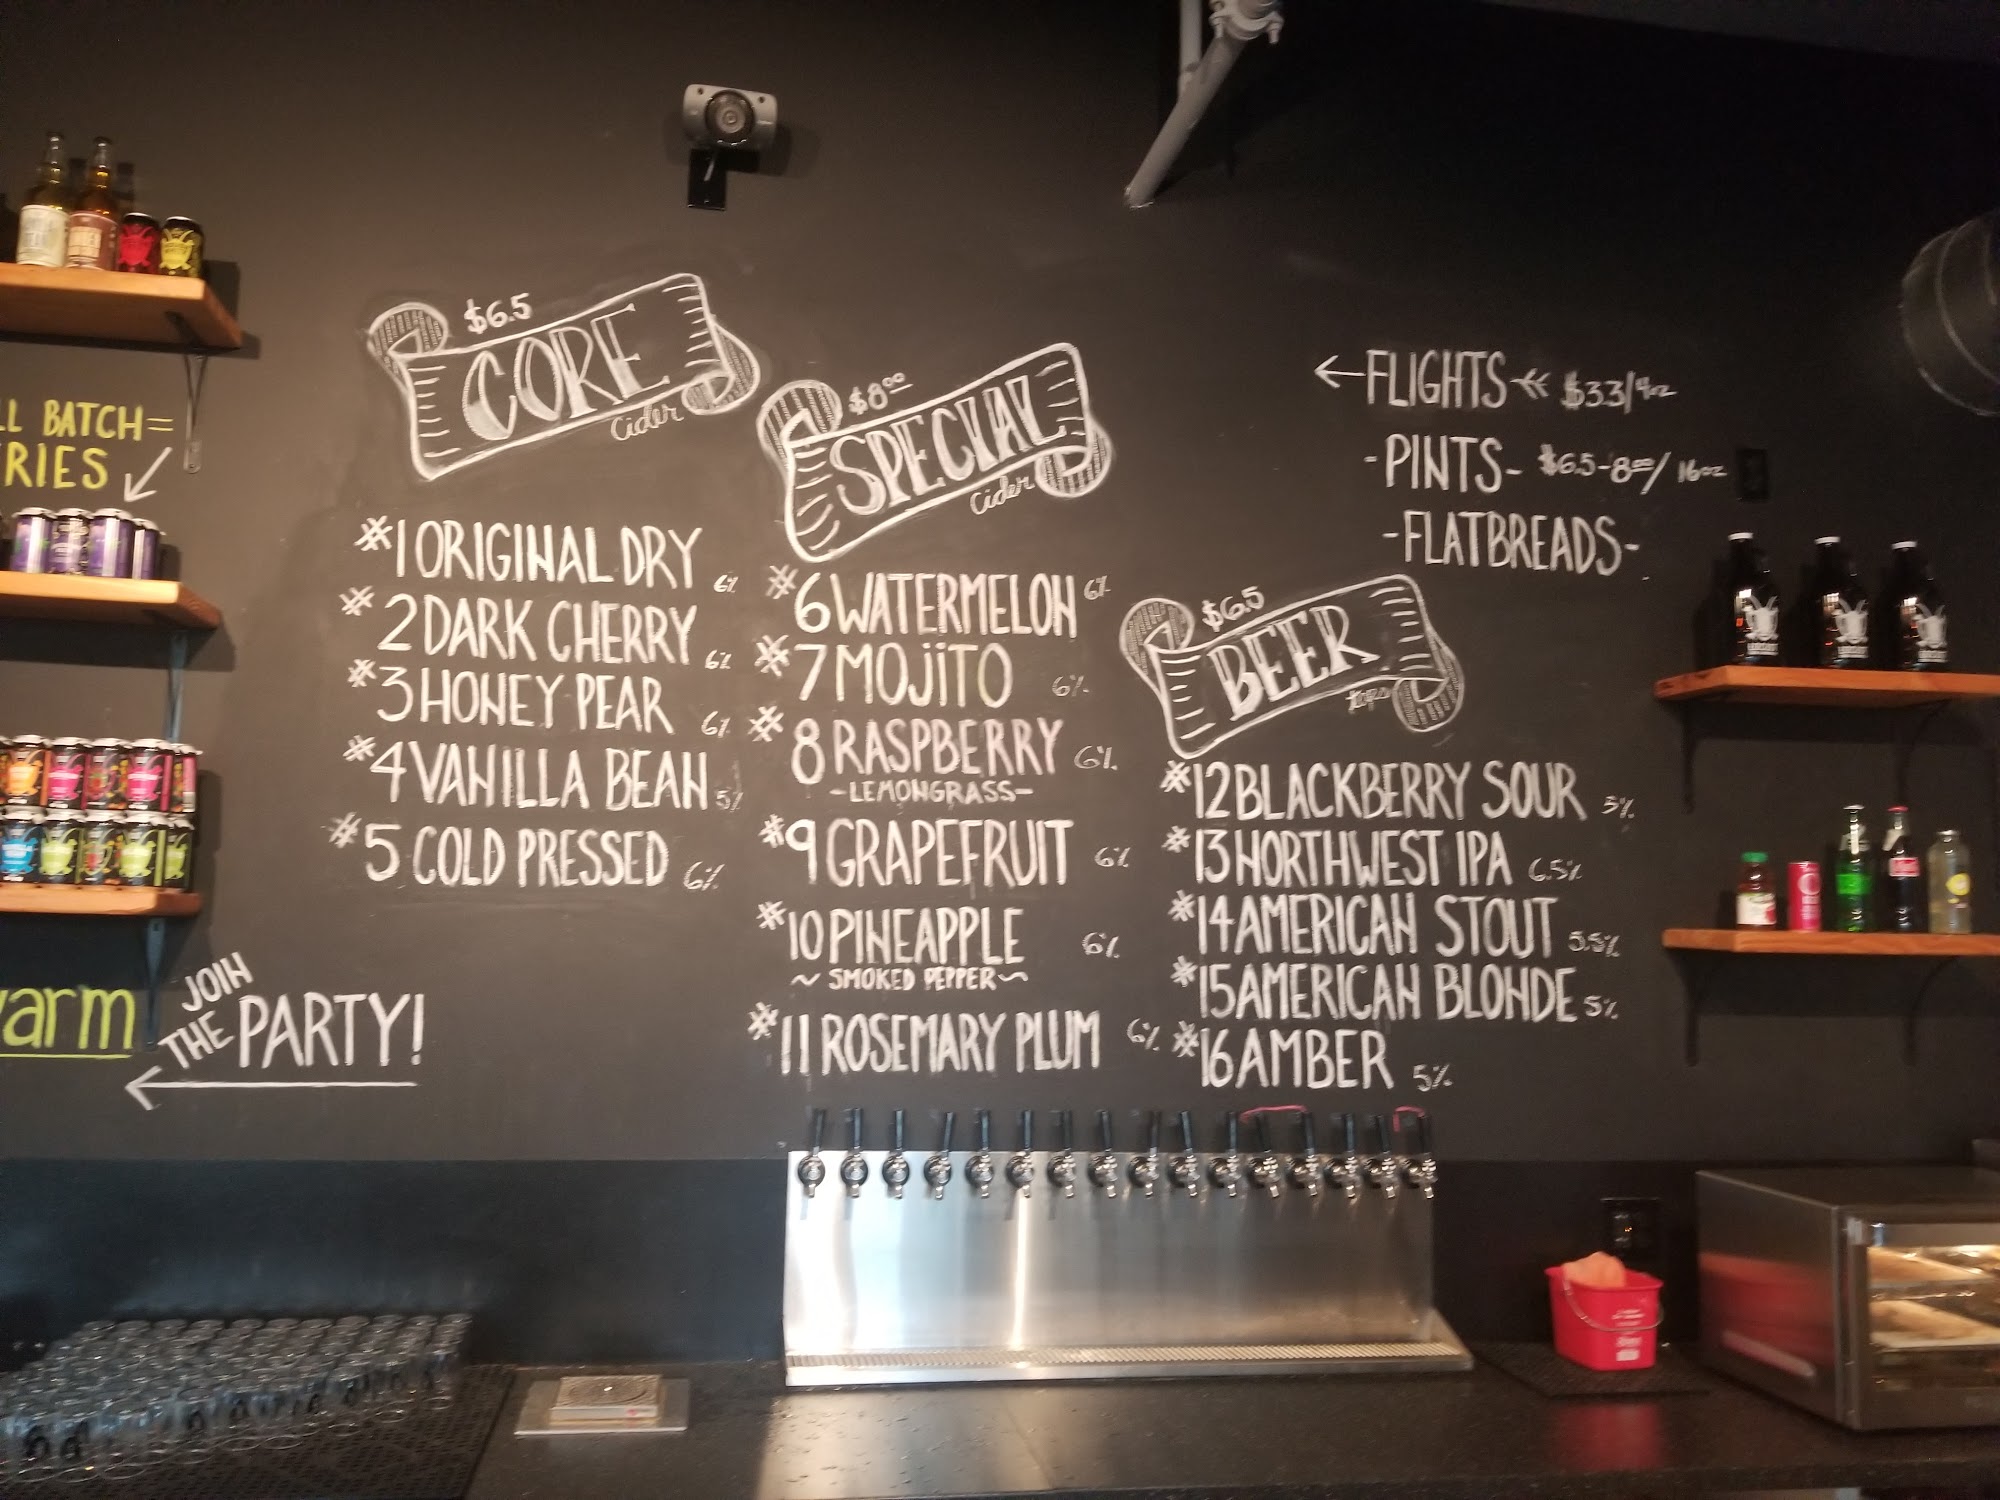 LL BATCH=
RIES
arm
JOIN
THE PARTY!
$6.5
CORE
Cider
#1 ORIGINAL DRY 6%
#2 DARK CHERRY 6%
#3 HONEY PEAR 6%
#4 VANILLA BEAN 5%
#5 COLD PRESSED 6%
$8.00
SPECIAL
Cider
#6 WATERMELON 6%
#7 MOJiTO 6%
#8 RASPBERRY 6%
-LEMONGRASS-
#9 GRAPEFRUIT 6%
#10 PINEAPPLE 6%
~ SMOKED PEPPER ~
#11 ROSEMARY PLUM 6%
←FLIGHTS
-PINTS- $6.5-8.00/16oz
-FLATBREADS-
$6.5
BEER
taps
#12 BLACKBERRY SOUR 5%
#13 NORTHWEST IPA 6.5%
#14 AMERICAN STOUT 5.5%
#15 AMERICAN BLONDE 5%
#16 AMBER 5%